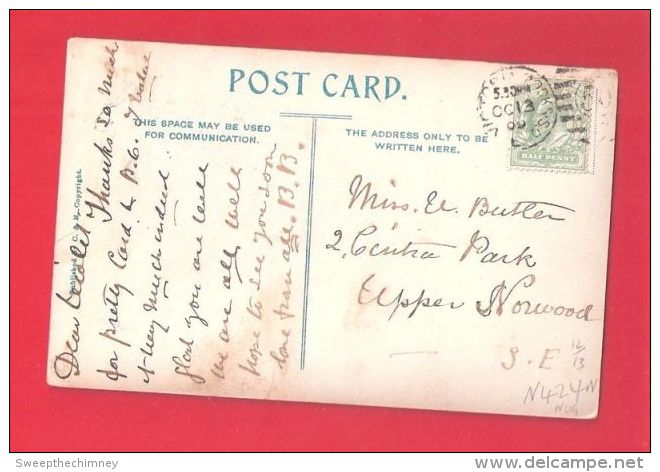 POST CARD.
THIS SPACE MAY BE USED
FOR COMMUNICATION.
THE ADDRESS ONLY TO BE
WRITTEN HERE.
Dear Thanks so much
for pretty Card & P.C.
much indeed
glad you are well
we are all well
hope to see you soon
love from all. B. B.
Miss. Butler
2, Park
Upper Norwood
S. E
12/13
N424N
5.30PM
OC 13
HALF PENNY
Copyright.
Sweepthechimney
www.delcampe.net